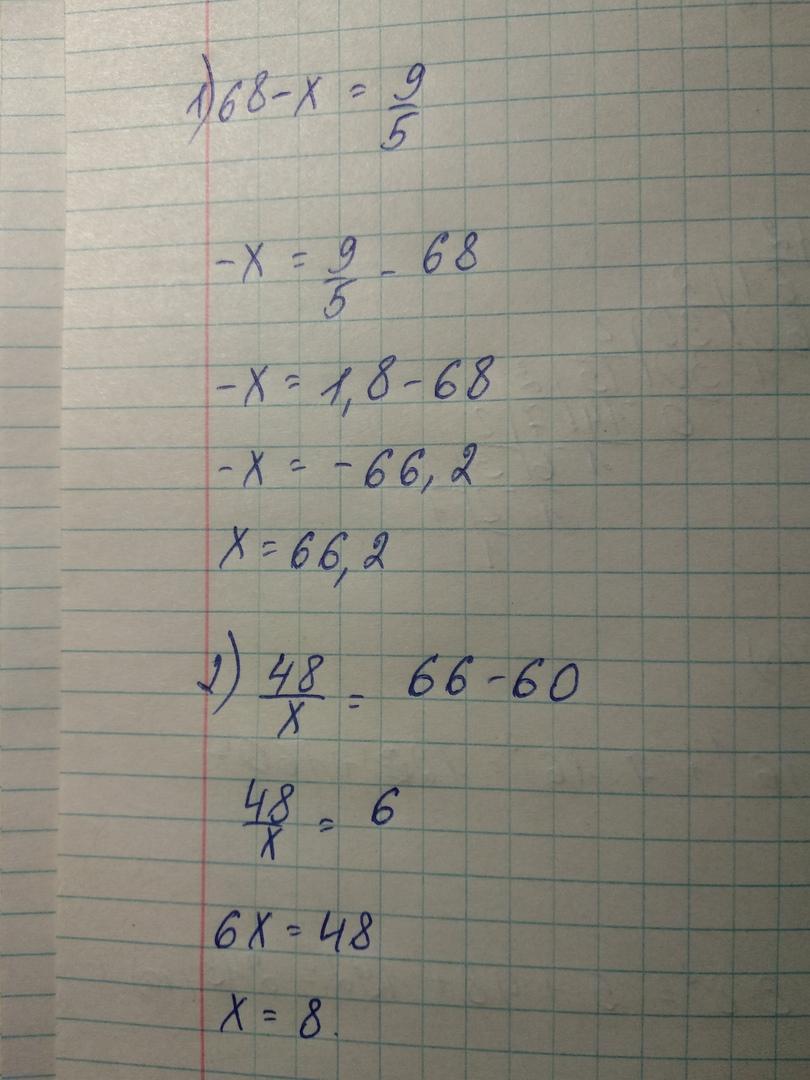 1) 68 - x = 9/5
-x = 9/5 - 68
-x = 1,8 - 68
-x = -66,2
x = 66,2
2) 48/x = 66 - 60
48/x = 6
6x = 48
x = 8.